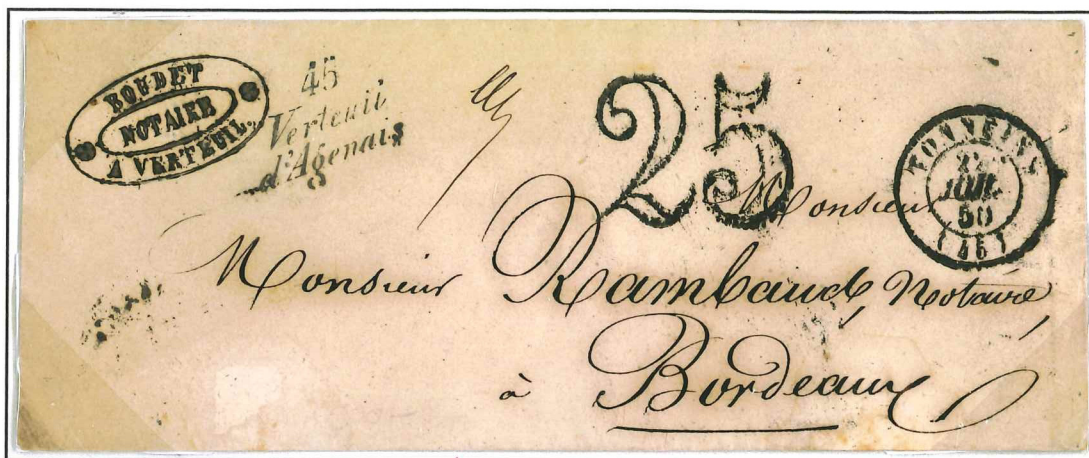 BOUDET
NOTAIRE
A VERTEUIL
45
Verteuil
d'Agenais
25
TONNEINS
JUIL.
50
(45)
Monsieur
Monsieur Rambaud, Notaire,
à Bordeaux